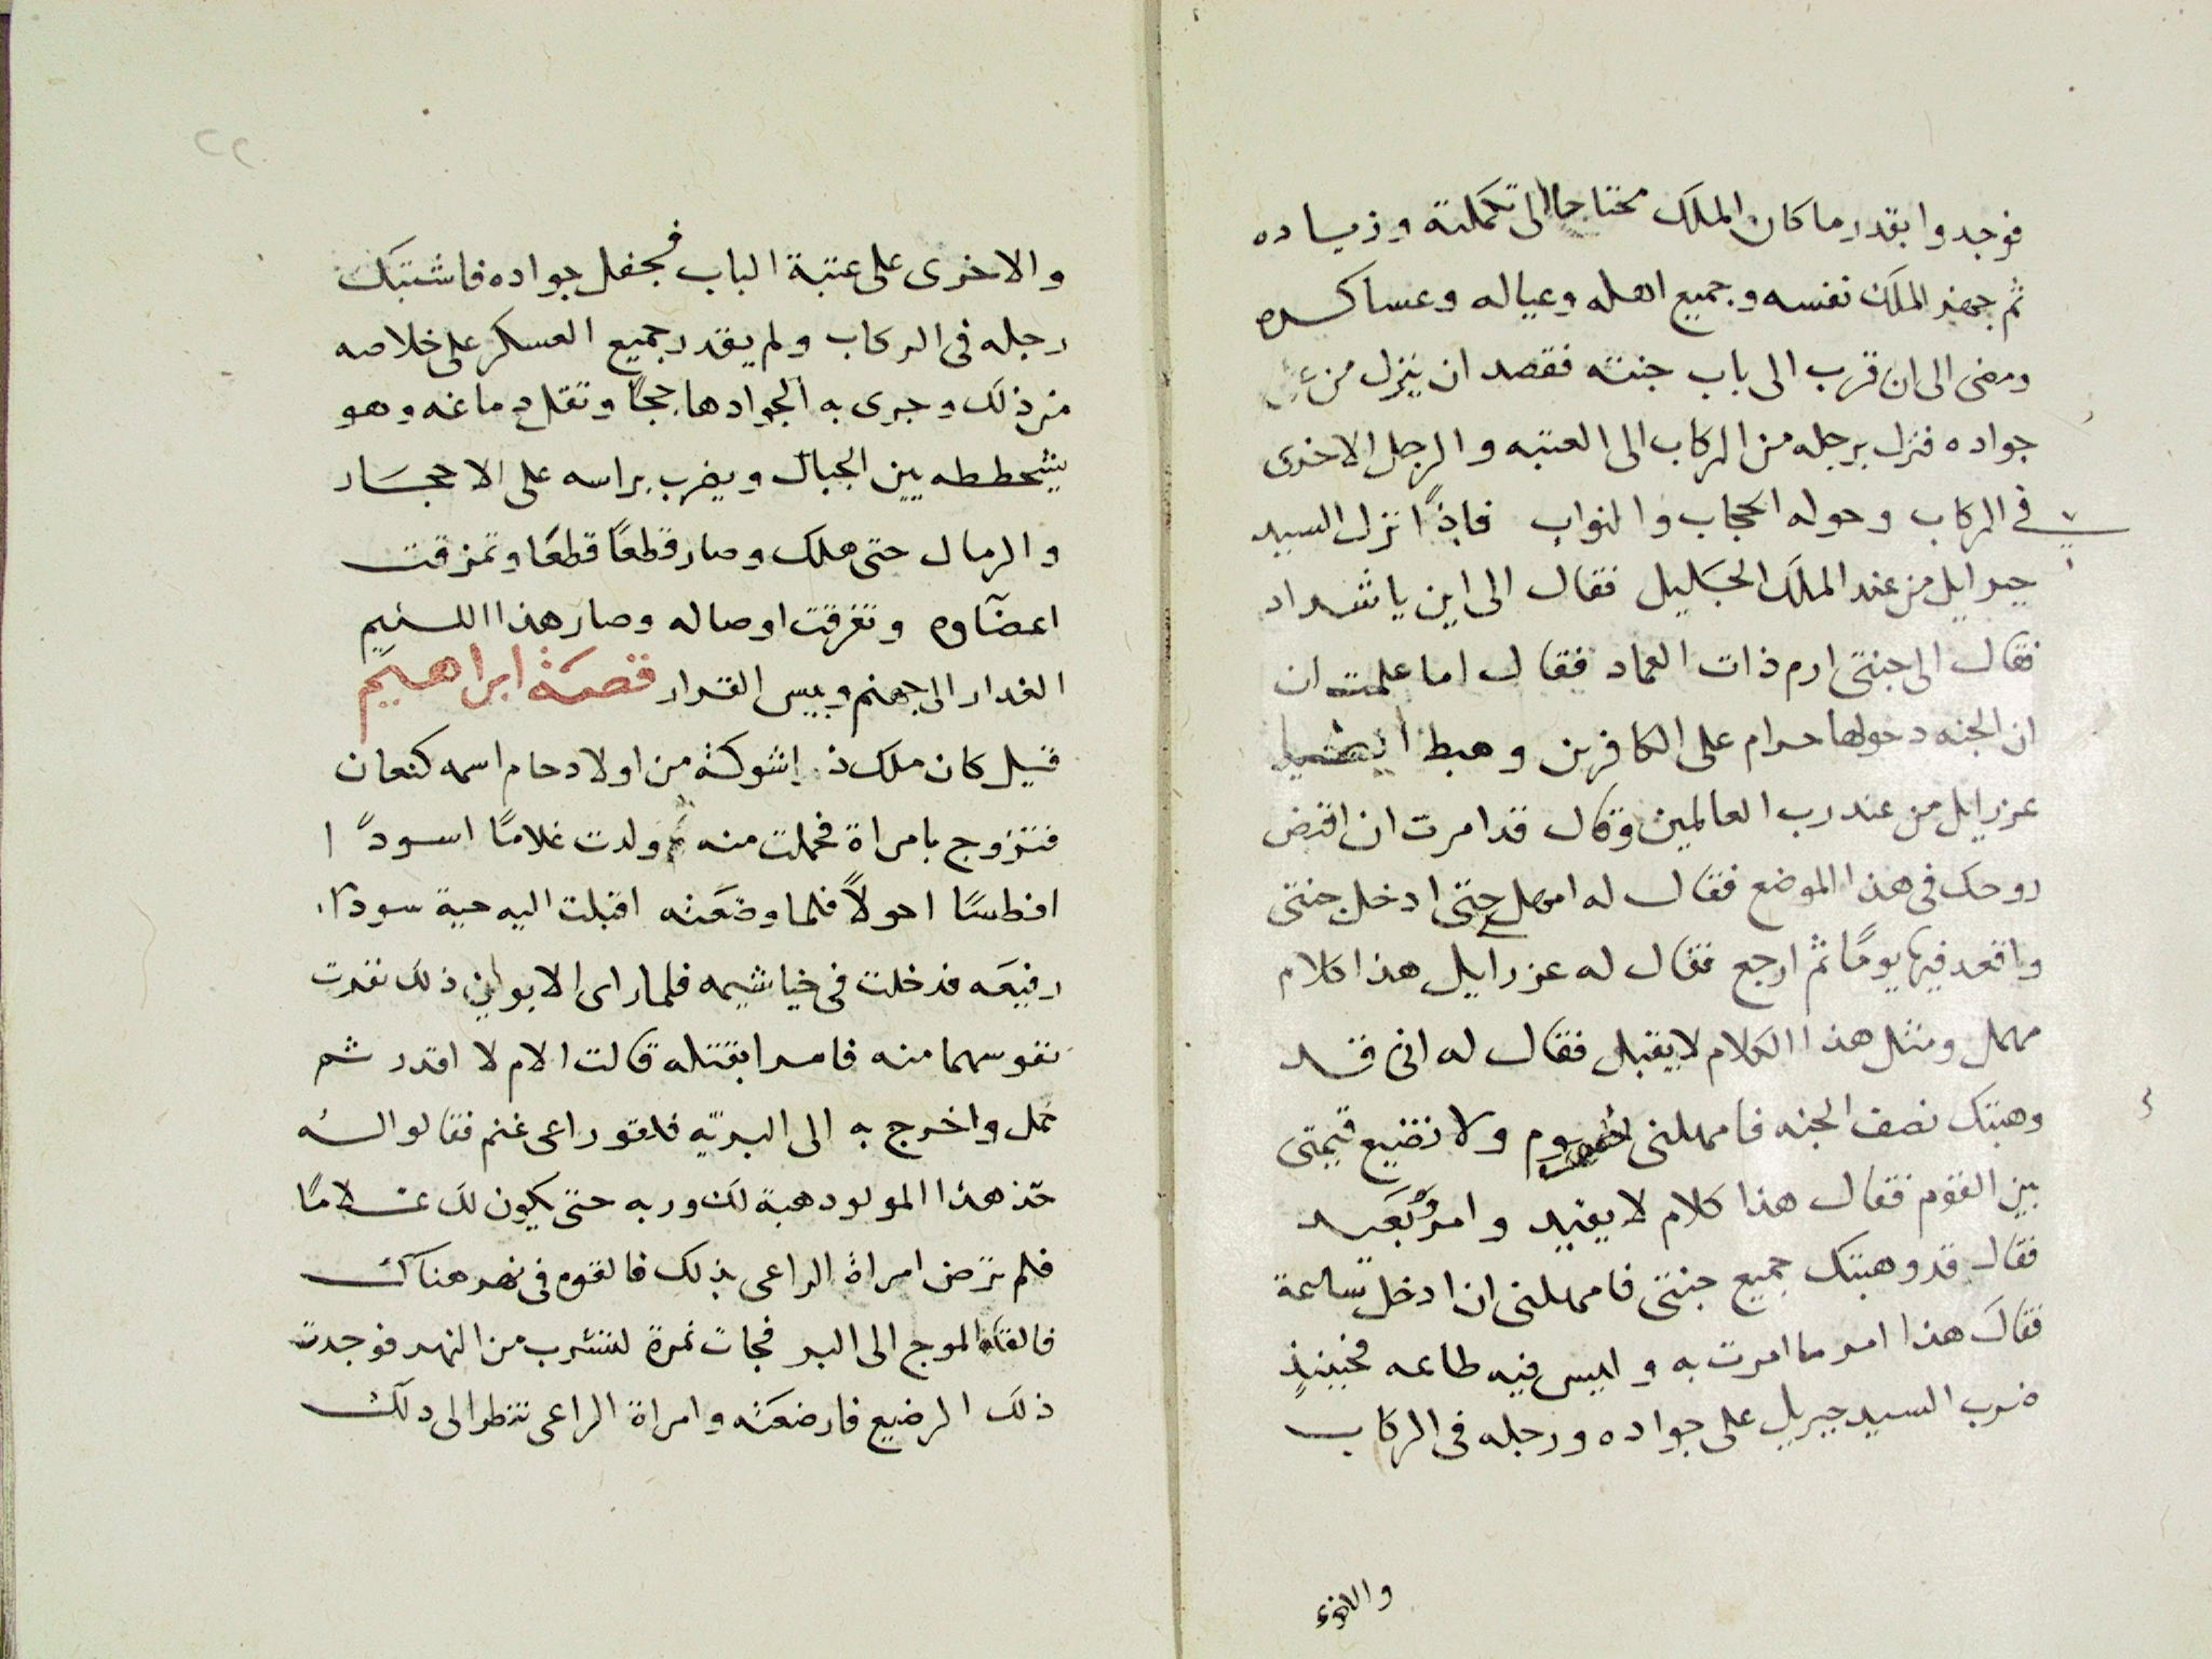 فوجدوا بقدر ما كان الملك محتاجا الى تكملته وزياده
ثم جهز الملك نفسه وجميع اهله وعياله وعساكره
ومضى الى ان قرب الى باب جنته فقصد ان ينزل من
جواده فنزل برجله من الركاب الى العتبه والرجل الاخرى
في الركاب وحوله الحجاب والنواب فاذًا نزل السيد
جبرايل من عند الملك الجليل فقال الى اين يا شداد
فقال الى جنتى ارم ذات العماد فقال اما علمت ان
ان الجنه دخولها حرام على الكافرين وهبط
عزرايل من عند رب العالمين وقال قد امرت ان اقبض
روحك فى هذا الموضع فقال له امهل حتى ادخل جنتى
واقعد فيها يومًا ثم ارجع فقال له عزرايل هذا كلام
مهمل ومثل هذا الكلام لا يقبل فقال له انى قد
وهبتك نصف الجنه فامهلنى يوم ولا تضيع قيمتى
بين القوم فقال هذا كلام لا يفيد وامرٌ بعيد
فقال قد وهبتك جميع جنتى فامهلنى ان ادخل ساعة
فقال هذا امر ما امرت به وليس فيه طاعه فحينيذٍ
ضرب السيد جبريل على جواده ورجله فى الركاب
والاخرى
٢٢
والاخرى على عتبة الباب فجفل جواده فاشتبك
رجله فى الركاب ولم يقدر جميع العسكر على خلاصه
من ذلك وجرى به الجواد هاججًا وتقلع دماغه وهو
يشحططه بين الجبال ويضرب براسه على الاحجار
والرمال حتى هلك وصار قطعًا قطعًا وتمزقت
اعضآوه وتفرقت اوصاله وصار هذا اللئيم
الغدار الى جهنم وبيس القرار قصة ابراهيم
قيل كان ملك ذا شوكة من اولاد حام اسمه كنعان
فتزوج بامراة فحملت منه ولدت غلامًا اسودًا
افطسًا احولًا فلما وضعته اقبلت اليه حية سودا
رفيعه فدخلت فى خياشيمه فلما راى الابوان ذلك نفرت
نفوسهما منه فامرا بقتله قالت الام لا اقدر ثم
حمل واخرج به الى البريّه فلاقو راعى غنم فقالو له
خذ هذا المولود هبة لك وربه حتى يكون لك غلامًا
فلم ترض امراة الراعى بذلك فالقوه فى نهر هناك
فالقاه الموج الى البر فجات نمرة لتشرب من النهر فوجدت
ذلك الرضيع فارضعته وامراة الراعى تنظر الى ذلك